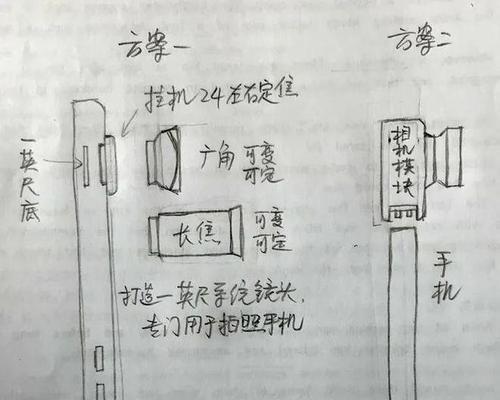 方案一
方案二
挂机24左右定焦
一英尺底
广角 可变
可定
长焦 可变
可定
打造一英尺系统镜头，
专门用于拍照手机
相机模块
手机